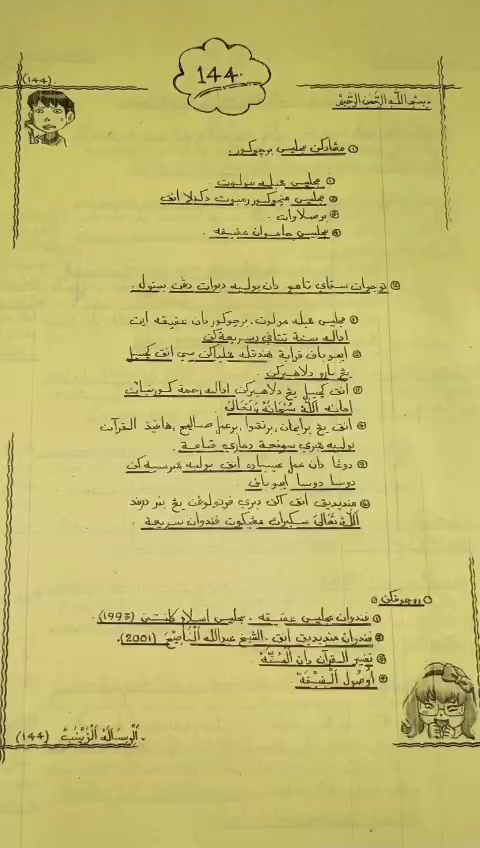 144.
(144).
. بِسْمِ اللّٰهِ الرَّحْمٰنِ الرَّحِيْمِ
① مڠادكن مجليس برچوكور.
① مجليس هبله مولوت
② مجليس منچوكور رمبوت دكڤلا انق
③ برصلاوات.
④ مجليس جاموان عقيقه.
② توجوان سڤاي تاهو دان بوليه دبوات دڠن بتول.
① مجليس هبله مولوت، برچوكور دان عقيقه اين
اداله سنة نبي دسريعةكن
② ايبو باڤ قرابة هندقله مليكن سي انق كچيل
يڠ بارو دلاهيركن.
③ انق كچيل يڠ دلاهيركن اداله رحمة كورنيان
امانه اللّٰه سُبْحَانَهُ وَتَعَالَىٰ.
④ انق يڠ برايمان، برتقوا، برعمل صاليح، حافيذ القرآن
بوليه ممبري شفاعة دهاري قيامة.
⑤ دوعا دان عمل عباده انق بوليه ممبرسيهكن
دوسا دوسا ايبو باڤ.
⑥ منديديق انق اكن دبري ڤرتولوڠن يڠ بر درڤد
اللّٰه تَعَالَىٰ سكيراڽ مڠيكوت ڤندوان شريعة.
○ روجوعكن:
① ڤندوان مجليس عقيقه. مجليس اسلام كلنتن (1993).
② ڤندوان منديديق انق. الشيخ عبدالله النَّاصِحُ (2001).
③ تفسير القرآن دان السُّنَّةْ
④ أُوصُول الْفِيْقَهْ.
. الْرِسَالَةْ الْزَيْنَبْ (144)